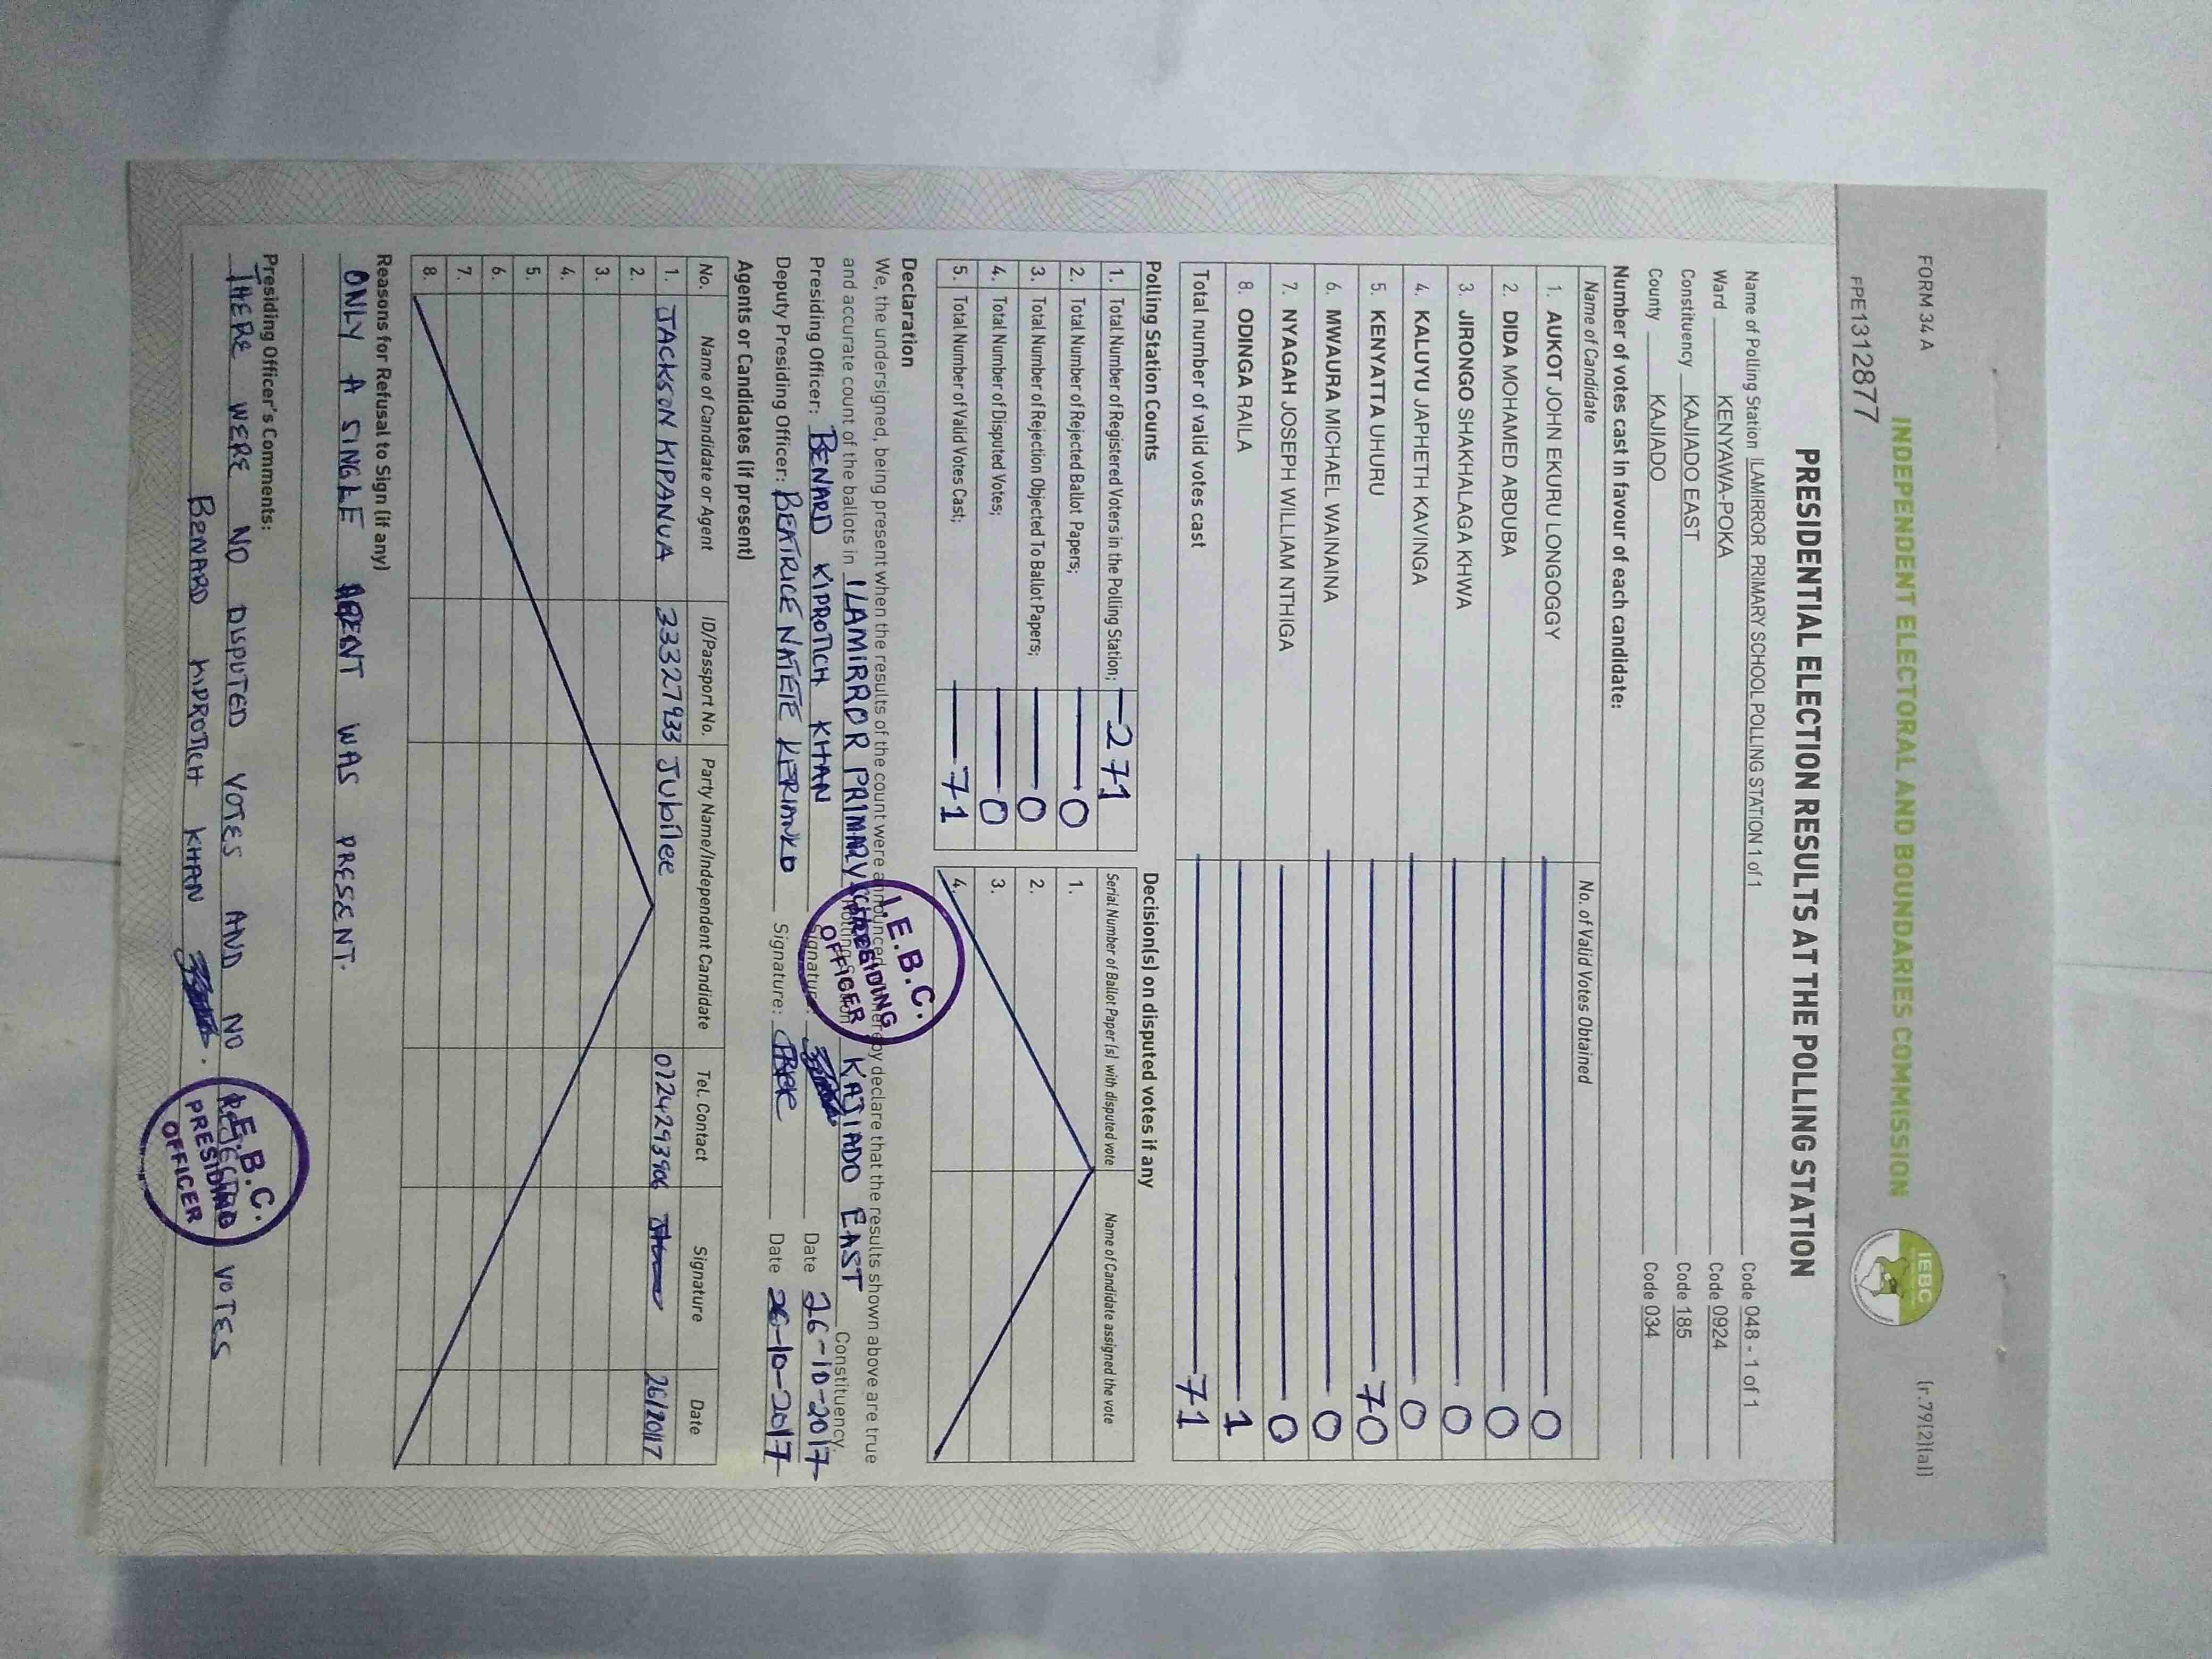 FORM 34 A
(r.79(2)(a))
INDEPENDENT ELECTORAL AND BOUNDARIES COMMISSION
IEBC
FPE1312877
PRESIDENTIAL ELECTION RESULTS AT THE POLLING STATION
Name of Polling Station ILAMIRROR PRIMARY SCHOOL POLLING STATION 1 of 1 Code 048 - 1 of 1
Ward KENYAWA-POKA Code 0924
Constituency KAJIADO EAST Code 185
County KAJIADO Code 034
Number of votes cast in favour of each candidate:
Name of Candidate No. of Valid Votes Obtained
1. AUKOT JOHN EKURU LONGOGGY 0
2. DIDA MOHAMED ABDUBA 0
3. JIRONGO SHAKHALAGA KHWA 0
4. KALUYU JAPHETH KAVINGA 0
5. KENYATTA UHURU 70
6. MWAURA MICHAEL WAINAINA 0
7. NYAGAH JOSEPH WILLIAM NTHIGA 0
8. ODINGA RAILA 1
Total number of valid votes cast 71
Polling Station Counts
1. Total Number of Registered Voters in the Polling Station; 271
2. Total Number of Rejected Ballot Papers; 0
3. Total Number of Rejection Objected To Ballot Papers; 0
4. Total Number of Disputed Votes; 0
5. Total Number of Valid Votes Cast; 71
Decision(s) on disputed votes if any
Serial Number of Ballot Paper (s) with disputed vote Name of Candidate assigned the vote
1.
2.
3.
4.
Declaration
We, the undersigned, being present when the results of the count were announced, hereby declare that the results shown above are true
and accurate count of the ballots in ILAMIRROR PRIMARY Polling Station KAJIADO EAST Constituency.
Presiding Officer: BENARD KIPROTICH KHAN Signature: Date 26-10-2017
Deputy Presiding Officer: BEATRICE NATETE Signature: Date 26-10-2017
I.E.B.C.
PRESIDING
OFFICER
Agents or Candidates (if present)
No. Name of Candidate or Agent ID/Passport No. Party Name/Independent Candidate Tel. Contact Signature Date
1. JACKSON KIPANUA 23327933 Jubilee 0724293906 26/2017
2.
3.
4.
5.
6.
7.
8.
Reasons for Refusal to Sign (if any)
ONLY A SINGLE AGENT WAS PRESENT.
Presiding Officer's Comments:
THERE WERE NO DISPUTED VOTES AND NO REJECTED VOTES
BENARD KIPROTICH KHAN
I.E.B.C.
PRESIDING
OFFICER